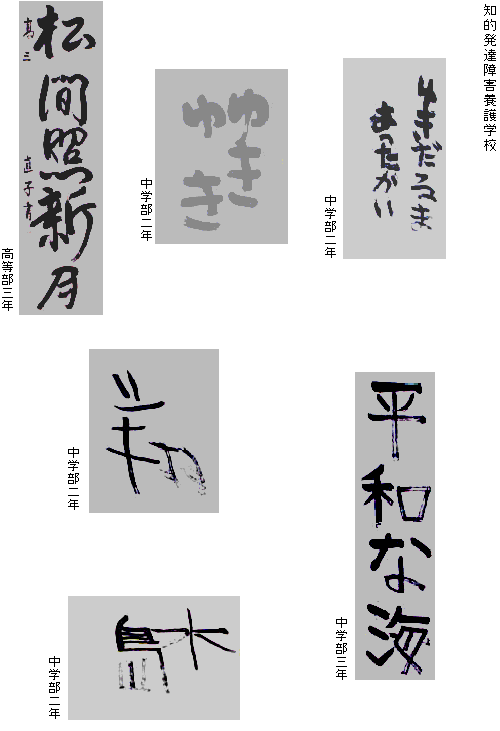 知的発達障害養護学校
ゆきだるま
あったかい
中学部二年
ゆき
ゆき
中学部二年
松間照新月
高三
高等部三年
平和な海
中学部三年
中学部二年
中学部二年